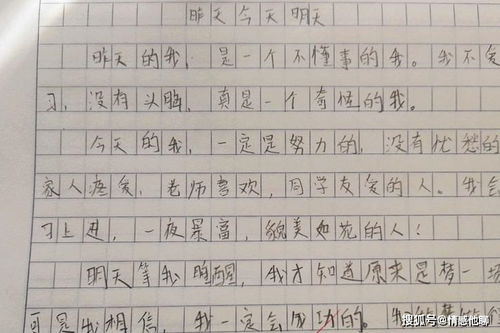 昨天今天明天
昨天的我，是一个不懂事的我。我不爱
习，没有头脑，真是一个奇怪的我。
今天的我，一定是努力的，没有忧愁的
家人疼爱，老师喜欢，同学友爱的人。我会
习上进，一夜暴富，貌美如花的人！
明天等我睡醒，我才知道原来是梦一场
可是我相信，我一定会成功的。我
搜狐号@情感他聊